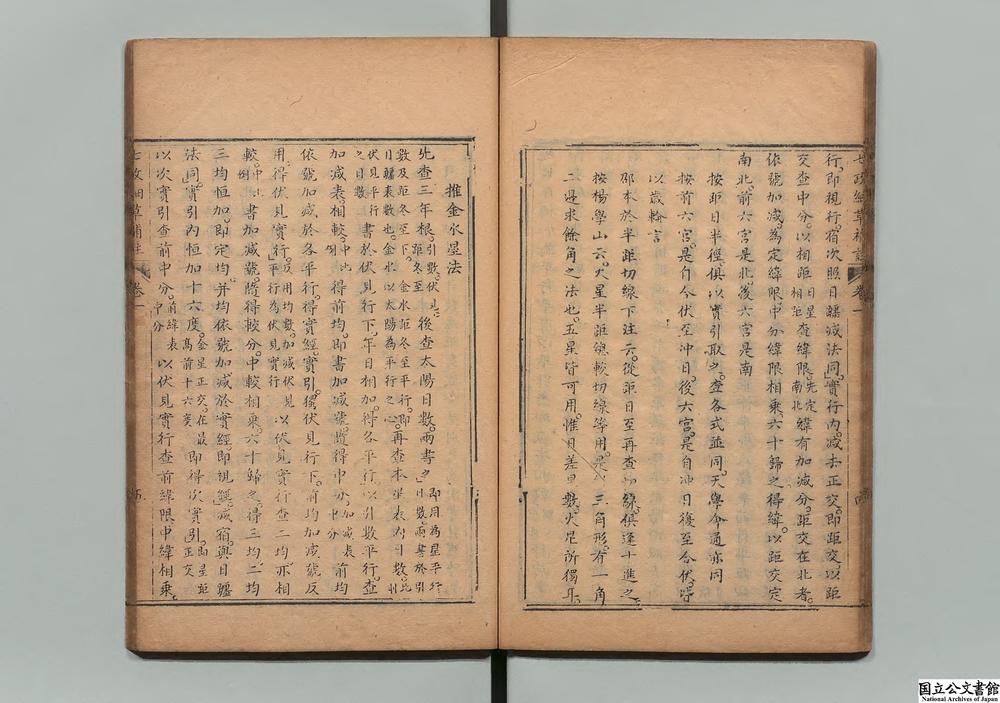 七政細草補註 卷一
行。即視行。宿次照日躔減法。同實行內減去正交。即距交。以距
交查中分。以相距日星相距查緯限。先定南北緯有加減分。距交在北者。
依號加減。為定緯限。中分緯限相乘。六十歸之得緯。以距交定
南北。前六宮是北。後六宮是南
按距日半徑。俱以實引取之。查各式並同。天學會通亦同
按前六宮。是自合伏至冲日。後六宮。是自冲日後至合伏。皆
以歲輪言
邵本於半距切線下注云。從距日至再查 線。俱逢十進之
按楊學山云。火星半距總較切線等用。是 三角形。有一角
二邊求餘角之法也。五星皆可用。惟日差 數。火星所獨耳。
推金水星法
先查三年根。引數。伏見。距冬至後查太陽日數。兩書之。即用為星平行日數。兩書於引
數及距冬至下。金水距冬至平行。即日躔表數也。金水以太陽為平行之心。再查本星表內日數。
伏見平行之日數書於伏見行下。年日相加。得各平行。以引數平行。查
加減表。相較。中比例得前均。即書加減號。隨得中分。加減表中分前均
依號加減於各平行。得實經。實引。獨伏見行下。前均加減號反
用。得伏見實行。反用均數。加減伏見平行為伏見實行以伏見實行查二均。亦相
較。中比例書加減號。隨得較分。中較相乘。六十歸之。得三均。二均
三均恒加。即定均。并均依號加減於實經。即視經。減宿。與日躔
法同。實引內恒加十六度。金星正交。在最高前十六度即得次實引。即星距正交
以次實引查前中分。前緯表中分以伏見實行查前緯限。中緯相乘。
七政細草補註 卷一
国立公文書館
National Archives of Japan